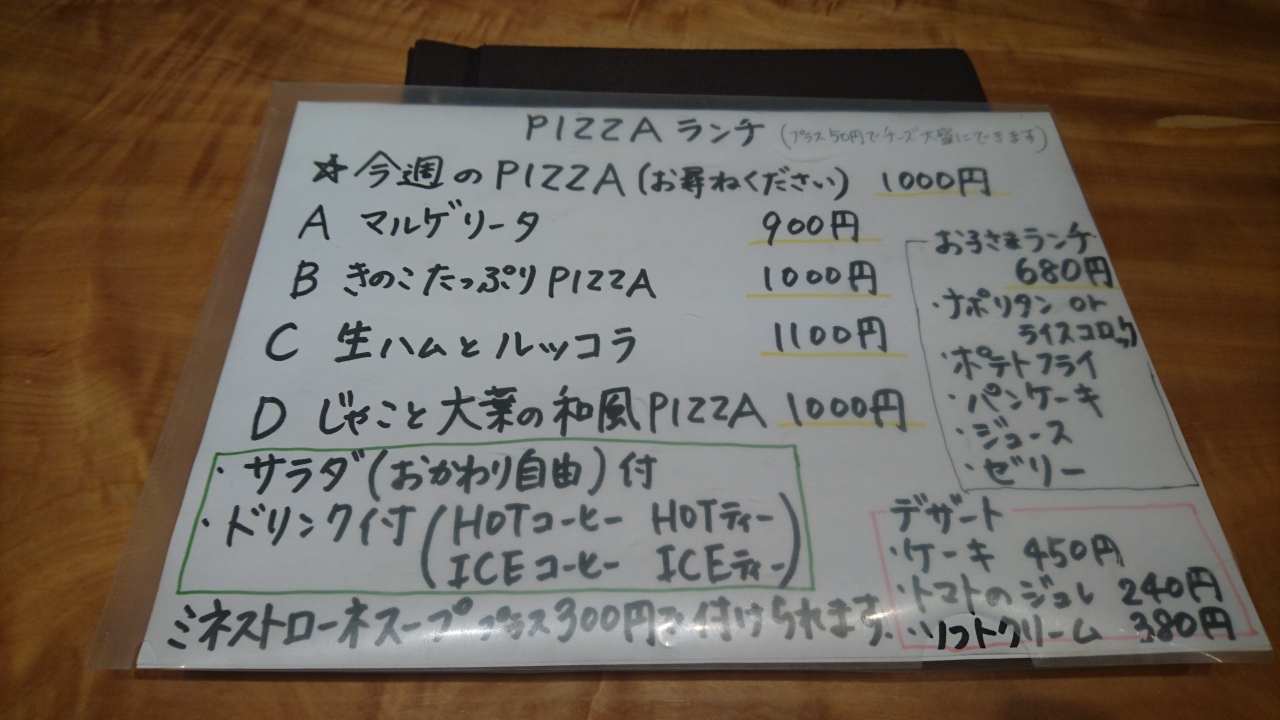 PIZZA ランチ (プラス50円でチーズ大盛にできます)
☆今週のPIZZA(お尋ねください) 1000円
A マルゲリータ 900円
B きのこたっぷりPIZZA 1000円
C 生ハムとルッコラ 1100円
D じゃこと大葉の和風PIZZA 1000円
・サラダ(おかわり自由)付
・ドリンク付(HOTコーヒー HOTティー
ICEコーヒー ICEティー)
ミネストローネスープ プラス300円で付けられます.
お子さまランチ
680円
・ナポリタン or
ライスコロッケ
・ポテトフライ
・パンケーキ
・ジュース
・ゼリー
デザート
・ケーキ 450円
・トマトのジュレ 240円
・ソフトクリーム 380円